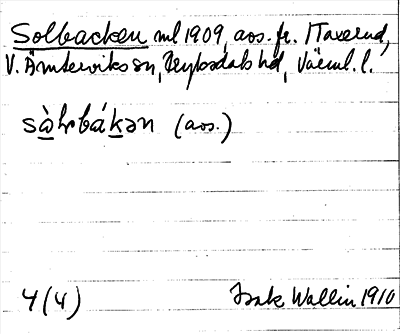 Solbacken ml 1909, avs. fr. 1 Taserud,
V. Ämterviks sn, Fryksdals hd, Värml. l.
sòlbákən (avs.)
4 (4) Isak Wallin 1910